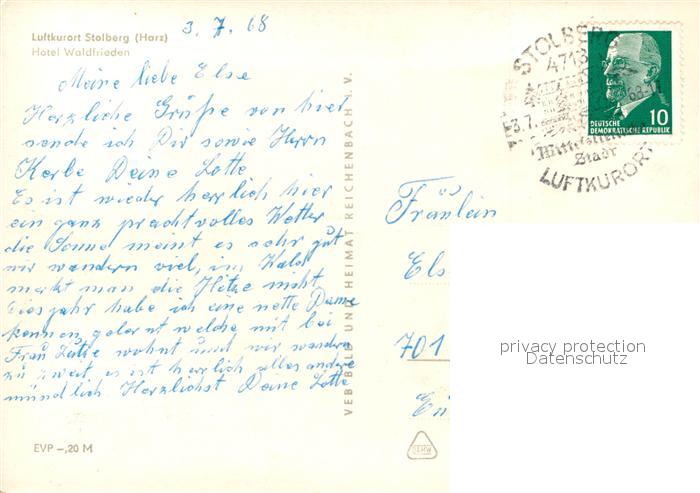 Luftkurort Stolberg (Harz)
Hotel Waldfrieden
3. 7. 68
Meine liebe Else
Herzliche Grüße von hier
sende ich Dir sowie Herrn
Kerbe Deine Lotte
Es ist wieder herrlich hier
ein ganz prachtvolles Wetter
die Sonne meint es sehr gut
wir wandern viel, im Wald
merkt man die Hitze nicht
Diesjahr habe ich eine nette Dame
kennen gelernt welche mit bei
Frau Lotte wohnt und wir wandern
zu zweit es ist herrlich alles andere
mündlich. Herzlichst Deine Lotte
EVP –,20 M
VEB BILD UND HEIMAT REICHENBACH I. V.
STOLBERG
4713
3.7.68-11
Mittelalterliche
Stadt
LUFTKURORT
10
DEUTSCHE
DEMOKRATISCHE REPUBLIK
Fräulein
Els
701
privacy protection
Datenschutz